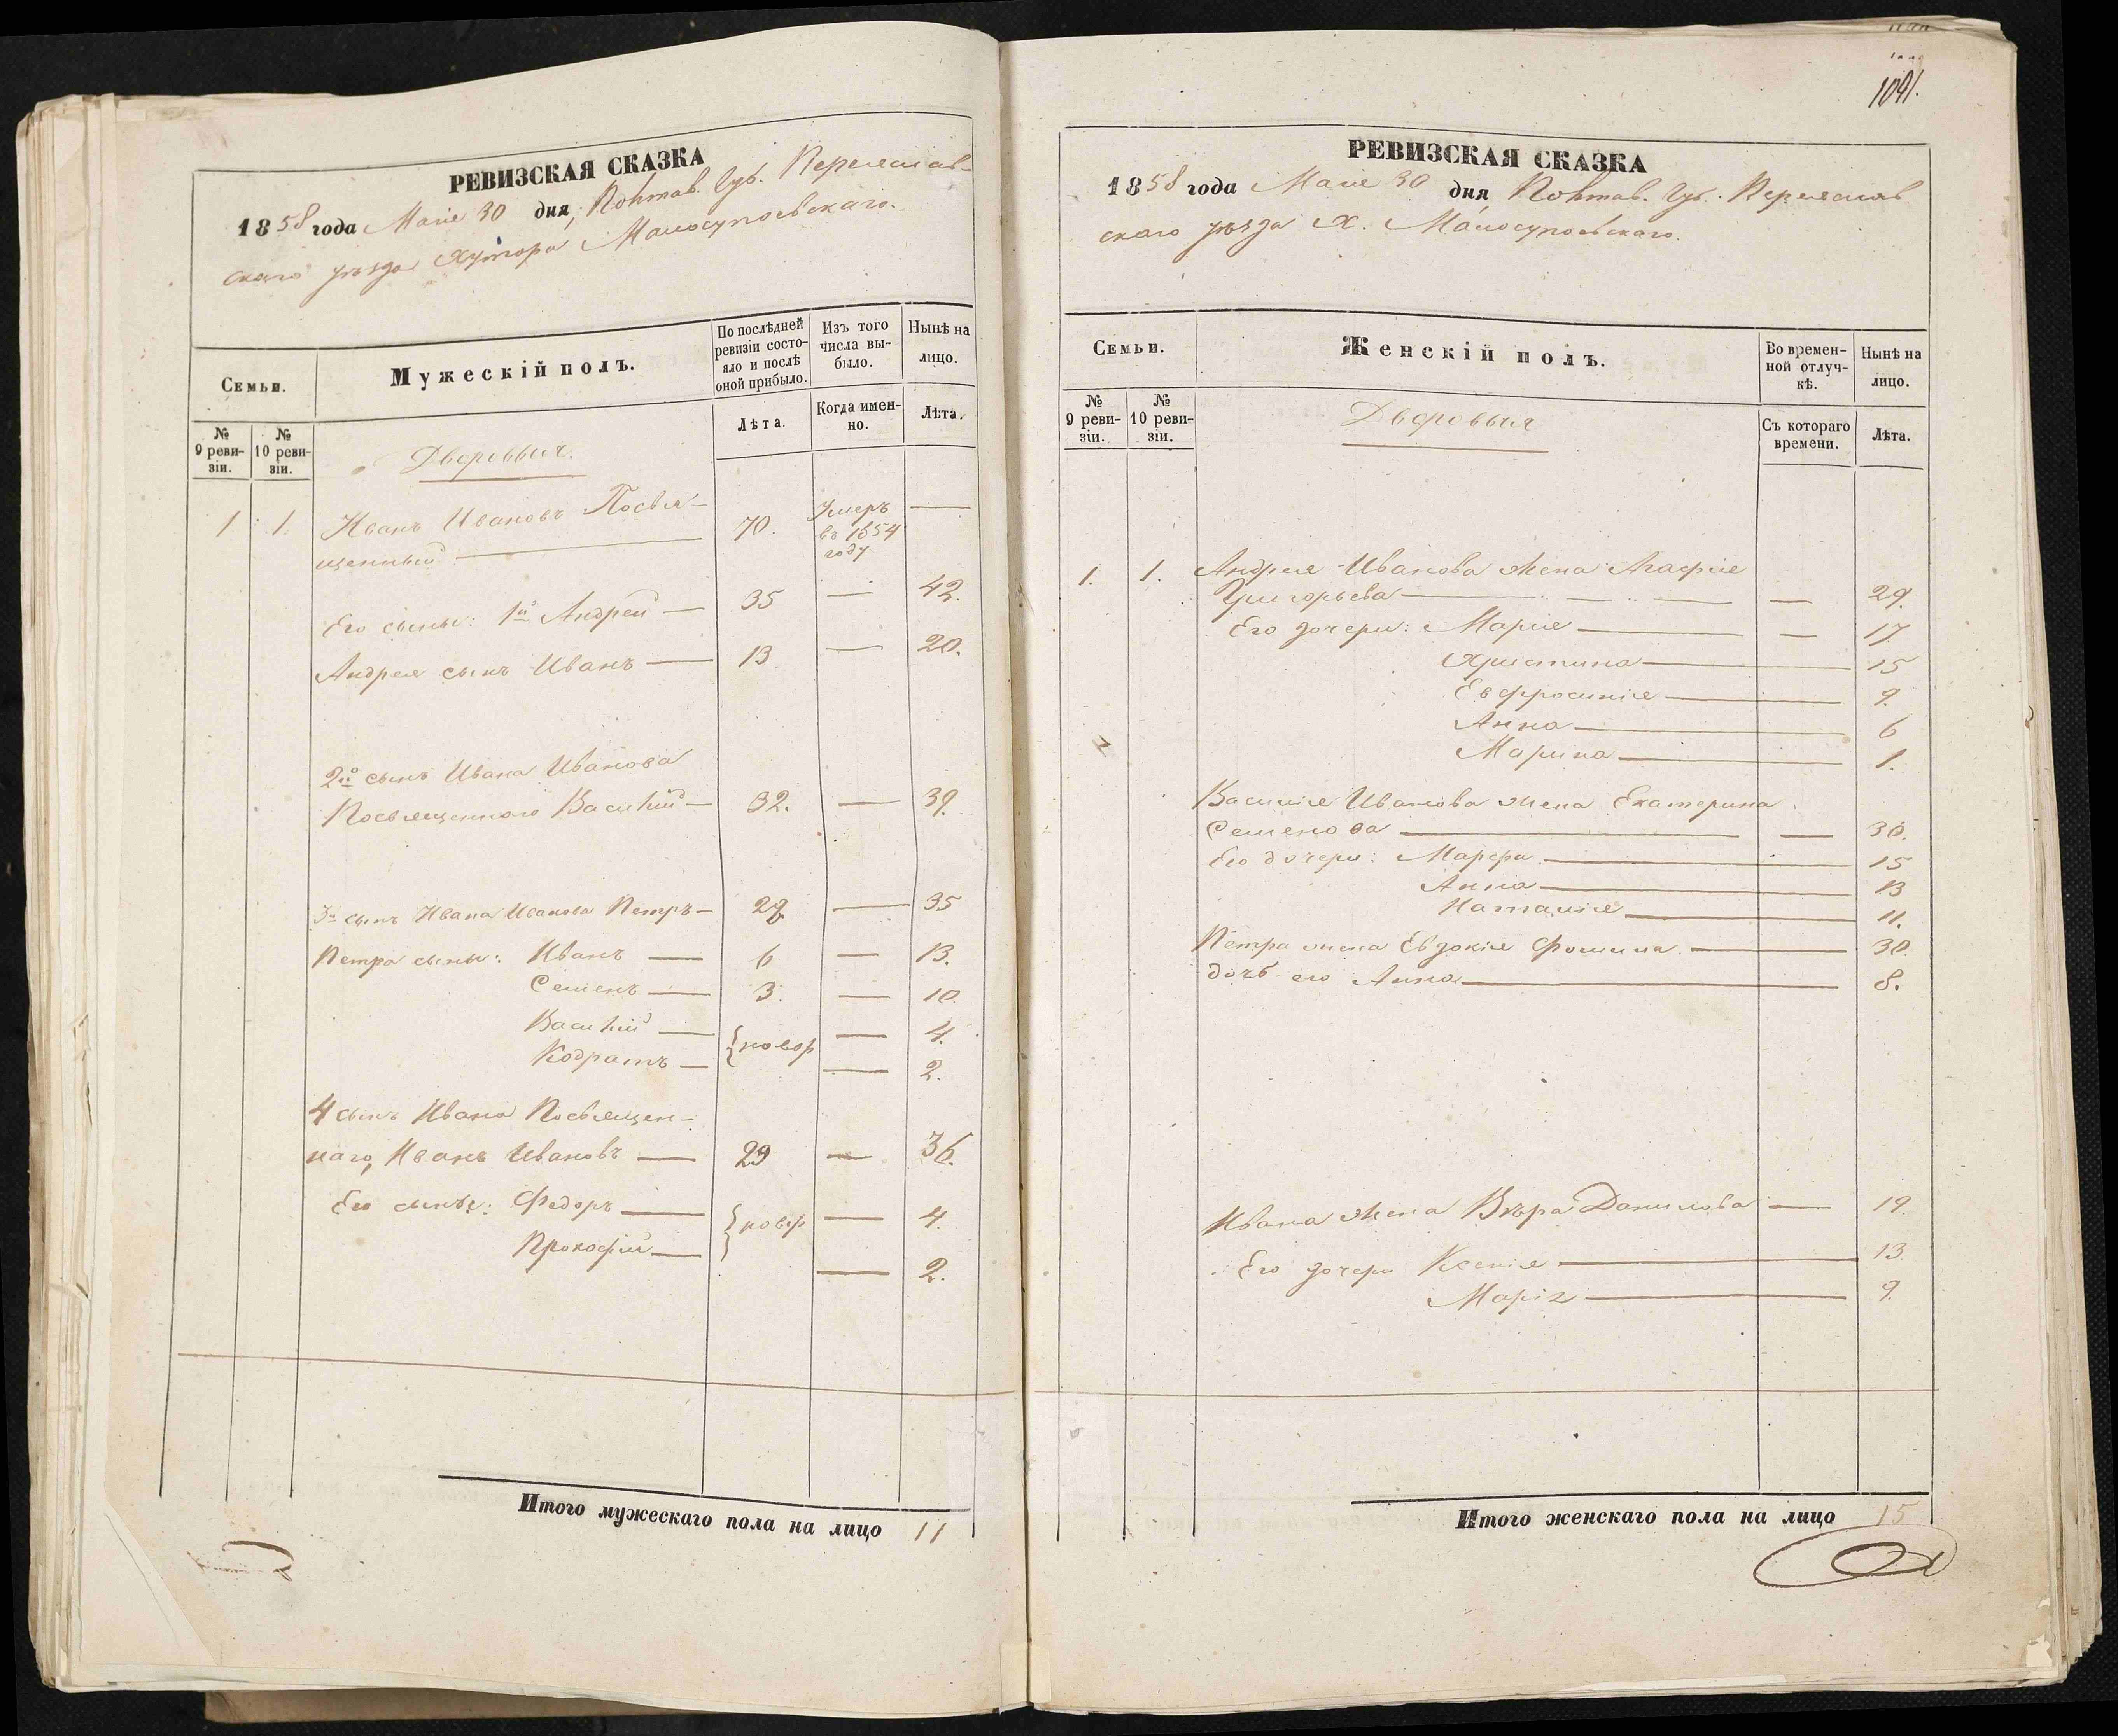 РЕВИЗСКАЯ СКАЗКА
1858 года Маія 30 дня, Полтав. Губ. Переяслав-
скаго уѣзда Хутора Малосупоевскаго.
Семьи.
Мужескій полъ.
По послѣдней ревизіи состо-
яло и послѣ
оной прибыло.
Изъ того
числа вы-
было.
Нынѣ на
лицо.
№
9 реви-
зіи.
№
10 реви-
зіи.
Лѣта.
Когда имен-
но.
Лѣта.
Дворовыя.
1 1. Иванъ Ивановъ Посвя- 70. Умеръ
въ 1854
году
щенный
Его сыны: 1й Андрей 35 42.
Андрея сынъ Иванъ 13 20.
2й сынъ Ивана Иванова
Посвященного Василій 32. 39.
3й сынъ Ивана Иванова Петръ 28 35
Петра сыны: Иванъ 6 13.
Семенъ 3. 10.
Василій новор 4.
Кодратъ 2.
4 сынъ Ивана Посвящен-
наго, Иванъ Ивановъ 29 36.
Его сыны: Федоръ новор 4.
Прокофій 2.
Итого мужескаго пола на лицо 11
1091.
РЕВИЗСКАЯ СКАЗКА
1858 года Маія 30 дня, Полтав. Губ. Переяслав
скаго уѣзда Х. Малосупоевскаго.
Семьи.
Женскій полъ.
Во времен-
ной отлуч-
кѣ.
Нынѣ на
лицо.
№
9 реви-
зіи.
№
10 реви-
зіи.
Съ котораго
времени.
Лѣта.
Дворовыя
1. 1. Андрея Иванова жена Агафія
Григорьева 29.
Его дочери: Марія 17
Христина 15
Евфросинія 9.
Анна 6
Марина 1.
Василія Иванова жена Екатерина
Семенова 36.
Его дочери: Марфа 15
Анна 13
Наталія 11.
Петра жена Евдокія Фомина 30.
дочь его Анна 8.
Ивана жена Вѣра Данилова 19.
Его дочери Ксенія 13
Марія 9.
Итого женскаго пола на лицо 15